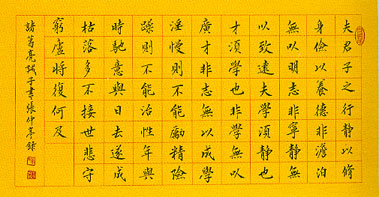 夫君子之行靜以修
身儉以養德非澹泊
無以明志非寧靜無
以致遠夫學須靜也
才須學也非學無以
廣才非志無以成學
淫慢則不能勵精險
躁則不能治性年與
時馳意與日去遂成
枯落多不接世悲守
窮廬將復何及
諸葛亮誡子書張仲亭錄